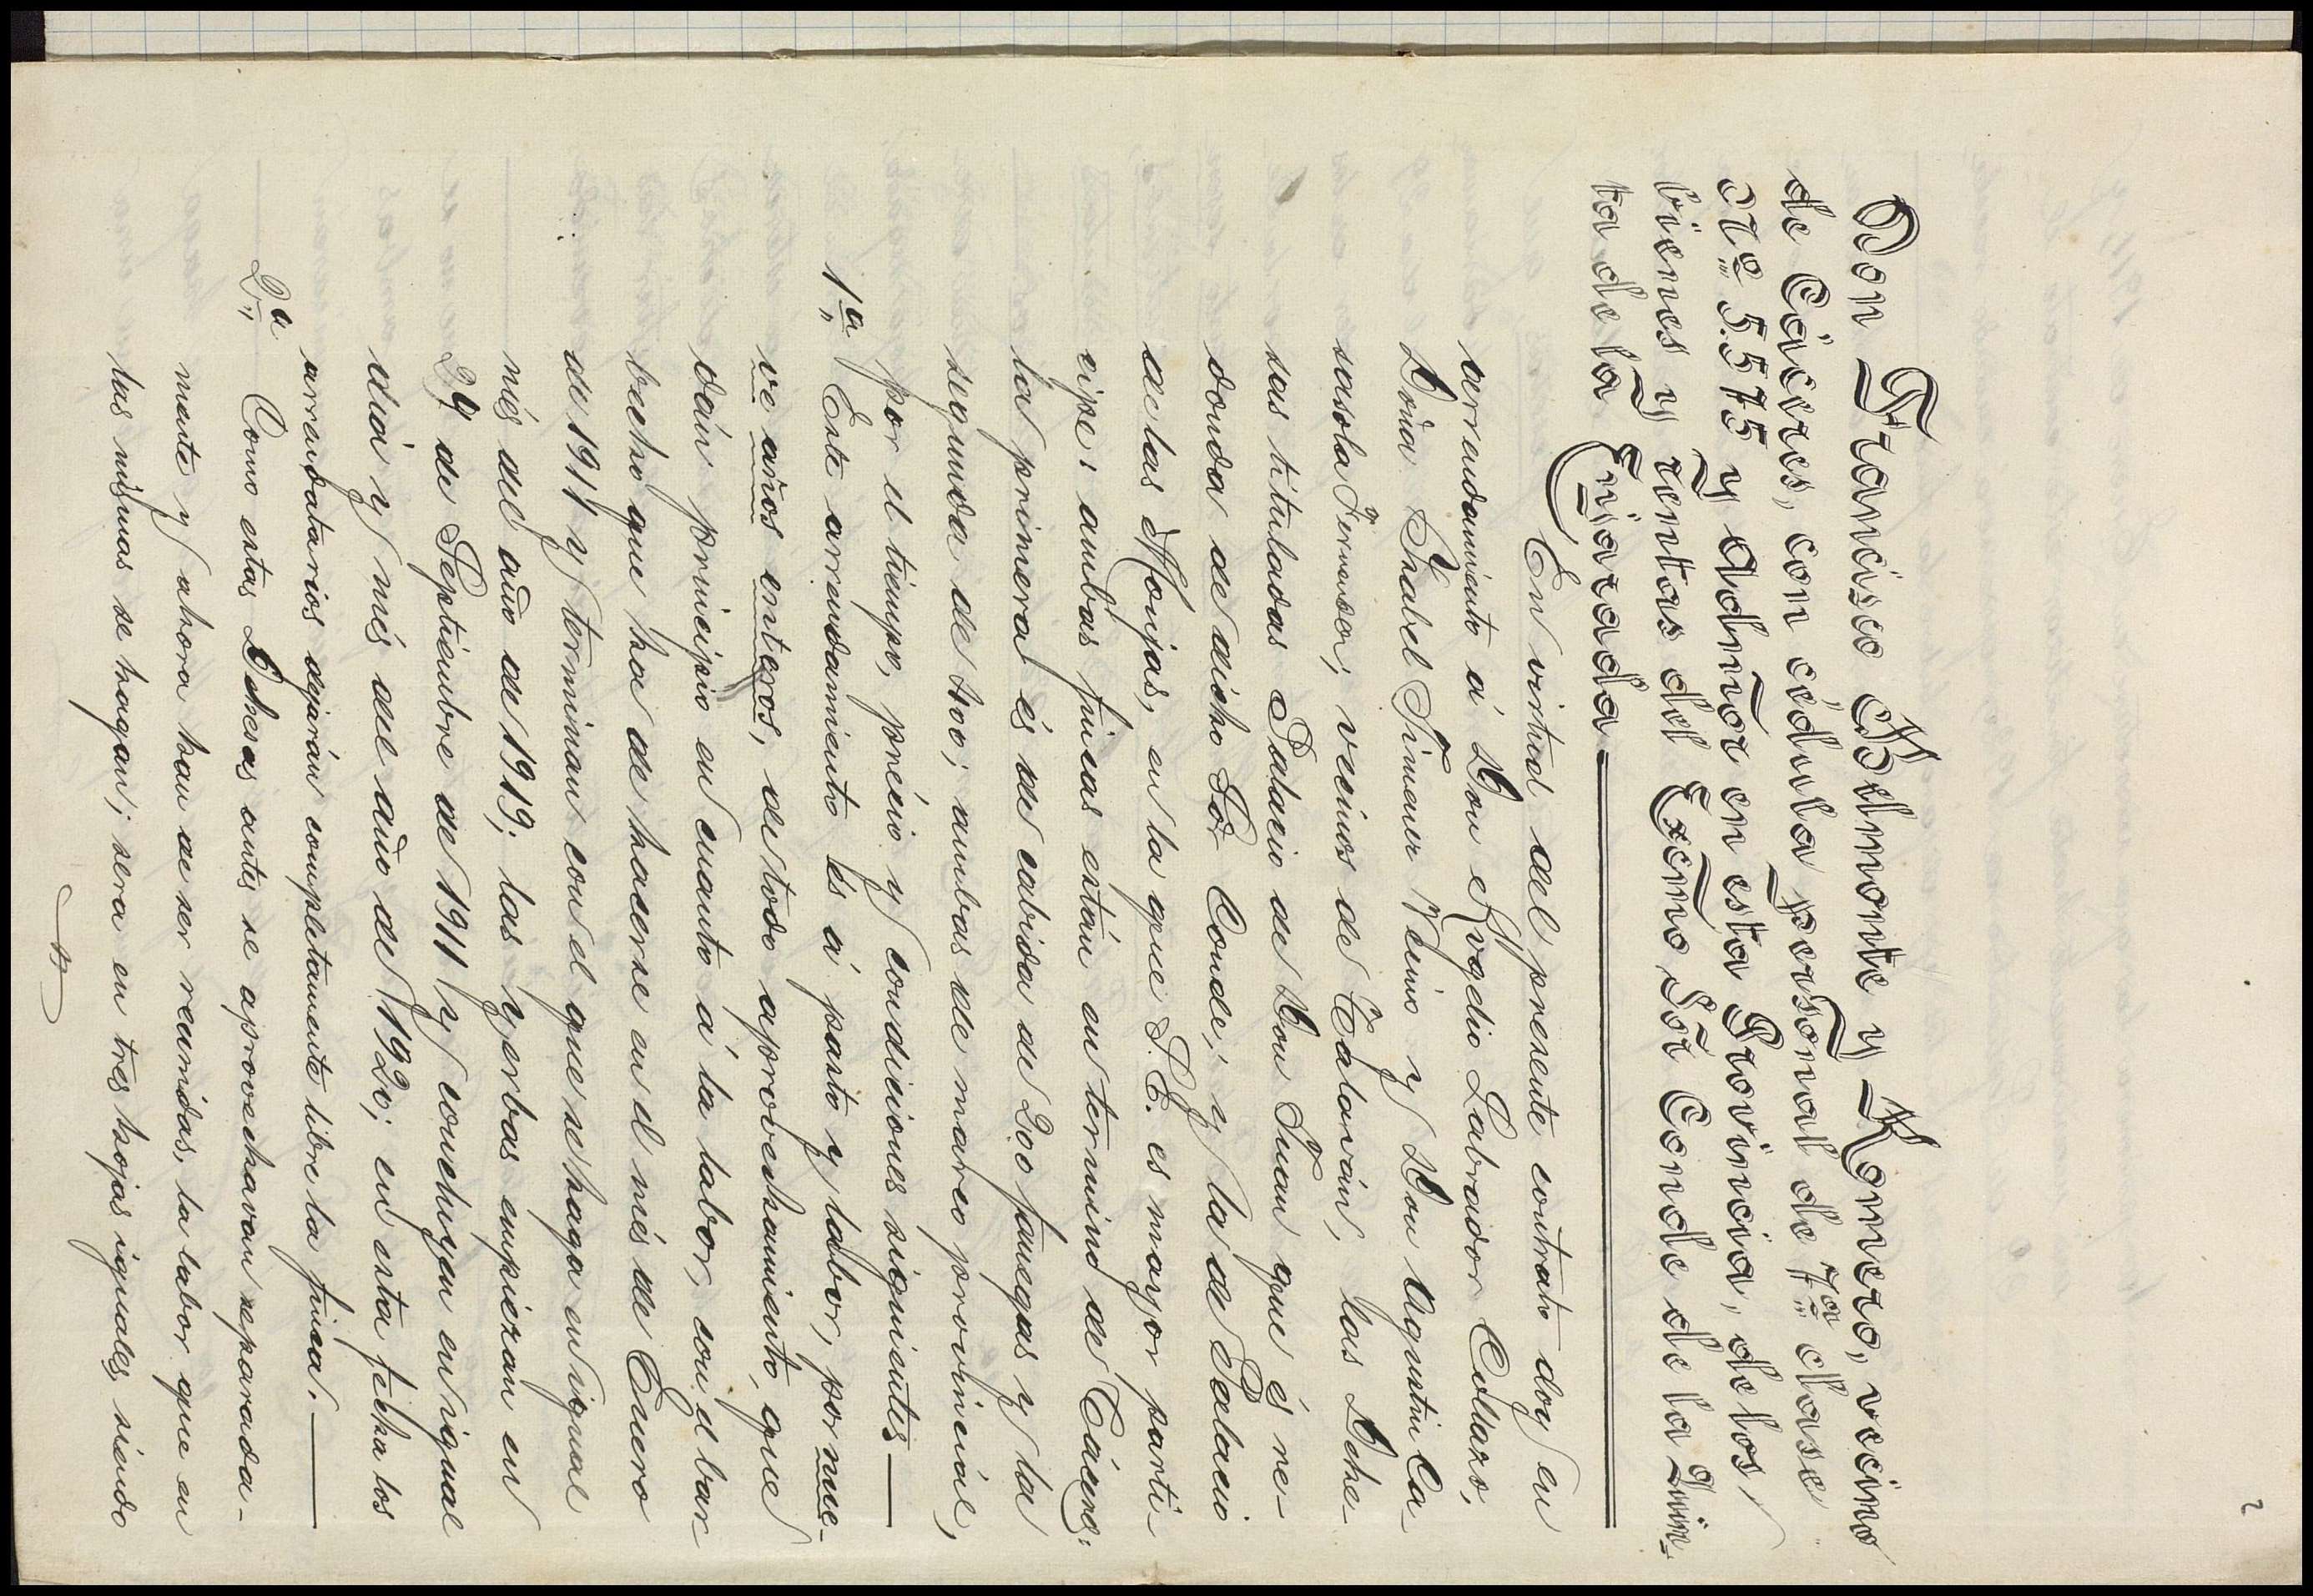 2
Don Francisco Belmonte y Romero, vecino
de Cáceres, con cédula personal de 7ª clase
nº 5.575 y Admõr en esta Provincia, de los
bienes y rentas del Excmo Sõr Conde de la Quin-
ta de la Enjarada
En virtud del presente contrato doy en
arrendamiento á Don Evodio Labrador Collazo,
Doña Isabel Simeur Vecino y Don Agustin Ca-
sasola Fernandez, vecinos de Talaván, las Dehe-
sas tituladas Palacio de Don Juan que és re-
donda de dicho Sõr Conde; y la de Palacio
de las Monjas, en la que S.E. es mayor parti-
cipe: ambas fincas están en termino de Cáceres:
la primera és de cabida de 200 fanegas y la
segunda de 400; ambas de marco provincial,
por el tiempo, précio y condiciones siguientes
1ª Este arrendamiento és á pasto y labor, por nue-
ve años enteros, de todo aprovechamiento, que
dán principio en cuanto á la labor, con el bar-
becho que ha de hacerse en el més de Enero
de 1911 y terminan con el que se haga en igual
més del año de 1919; las yerbas empiezan en
29 de Septiembre de 1911 y concluyen en igual
diá y més del año de 1920; en esta fecha los
arrendatarios dejarán completamente libre la finca.
2ª Como estas Dehesas antes se aprovechavan separada-
mente y ahora han de ser reunidas, la labor que en
las mismas se hagan; sera en tres hojas iguales, siendo